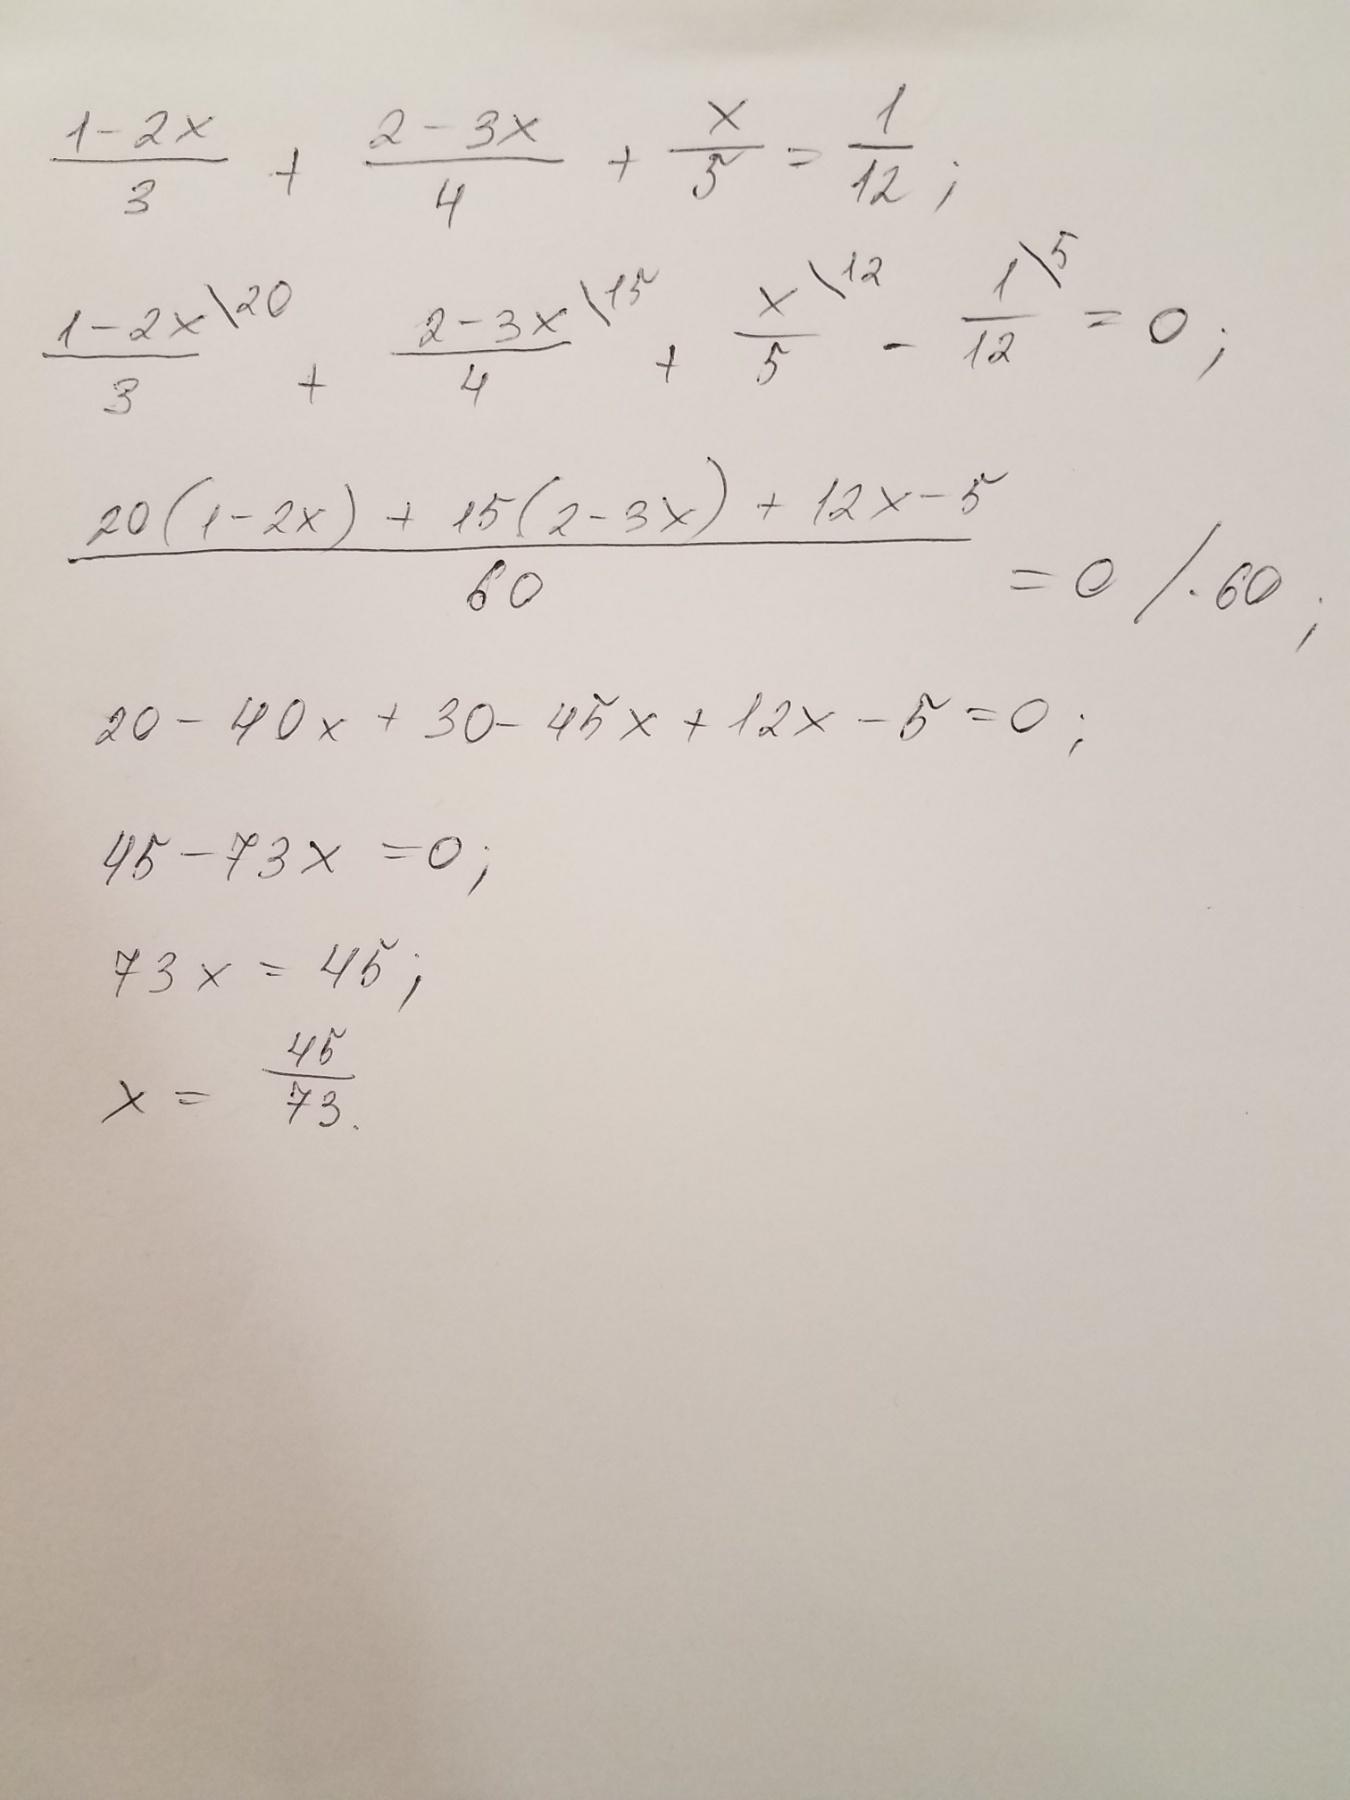 (1-2x)/3 + (2-3x)/4 + x/5 = 1/12;
(1-2x)/3 \20 + (2-3x)/4 \15 + x/5 \12 - 1/12 \5 = 0;
(20(1-2x) + 15(2-3x) + 12x-5)/60 = 0 /·60;
20 - 40x + 30 - 45x + 12x - 5 = 0;
45 - 73x = 0;
73x = 45;
x = 45/73.